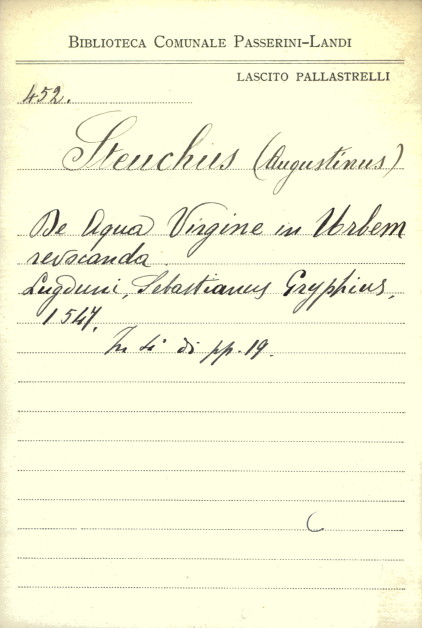 BIBLIOTECA COMUNALE PASSERINI-LANDI
LASCITO PALLASTRELLI
452.
Steuchus (Augustinus)
De Aqua Virgine in Urbem
revocanda
Lugduni, Sebastianus Gryphius,
1547.
In 4° di pp. 19.